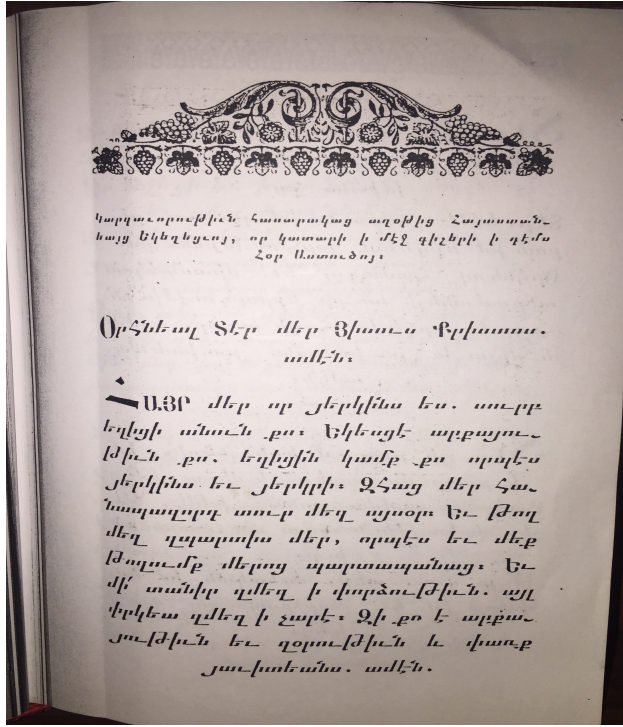 Կարգաւորութիւն հասարակաց աղօթից Հայաստան-
եայց Եկեղեցւոյ, որ կատարի ի մէջ գիշերի ի դէմս
Հօր Աստուծոյ։
Օրհնեալ Տէր մեր Յիսուս Քրիստոս.
ամէն։
ՀԱՅՐ մեր որ յերկինս ես. սուրբ
եղիցի անուն քո։ Եկեսցէ արքայու-
թիւն քո. եղիցին կամք քո որպէս
յերկինս եւ յերկրի։ ԶՀաց մեր հա-
նապազորդ տուր մեզ այսօր։ Եւ թող
մեզ զպարտիս մեր, որպէս եւ մեք
թողումք մերոց պարտապանաց։ Եւ
մի՛ տանիր զմեզ ի փորձութիւն. այլ
փրկեա զմեզ ի չարէ։ Զի քո է արքա-
յութիւն եւ զօրութիւն և փառք
յաւիտեանս. ամէն.